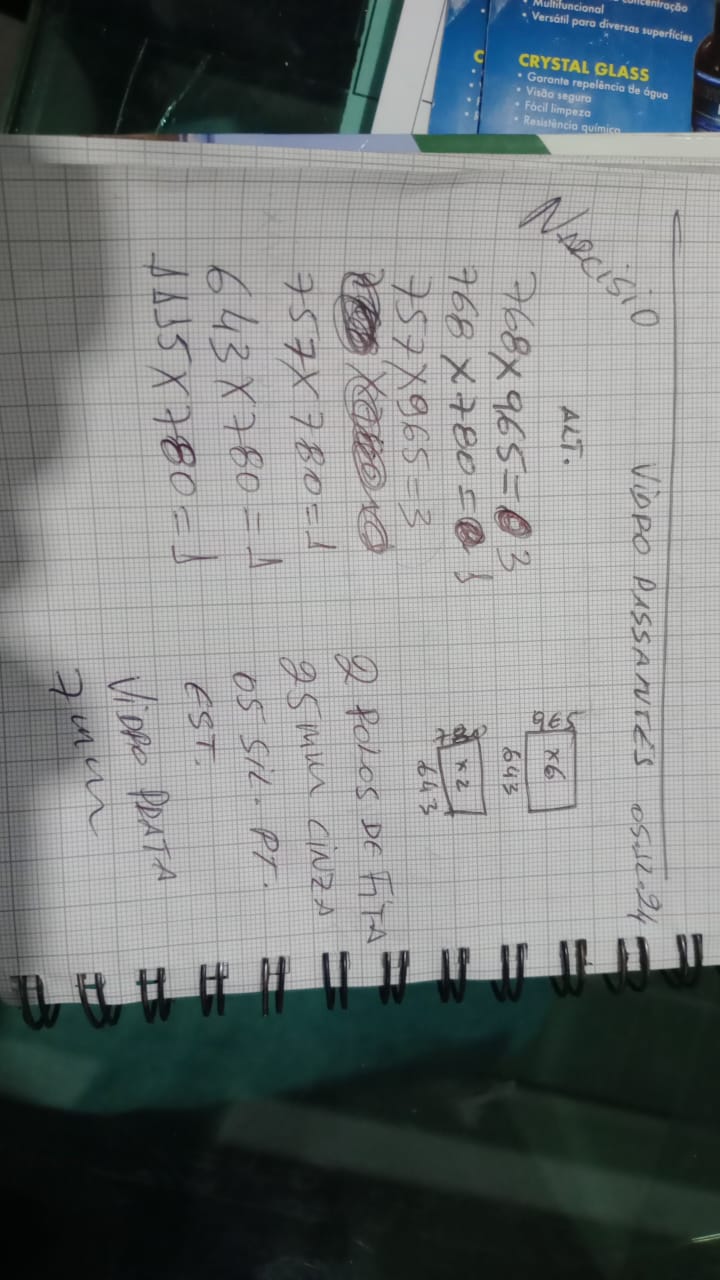 concentração
• Multifuncional
• Versátil para diversas superfícies
CRYSTAL GLASS
• Garante repelência de água
• Visão segura
• Fácil limpeza
• Resistência química
VIDRO PASSANTES 05.12.24
NARCISIO
ALT.
768X965=3
768X780=1
757X965=3
757X780=1
643X780=1
1115X780=1
965
x6
643
780
x2
643
2 ROLOS DE FITA
25 MM CINZA
05 SIL. PT.
EST.
VIDRO PRATA
7 mm